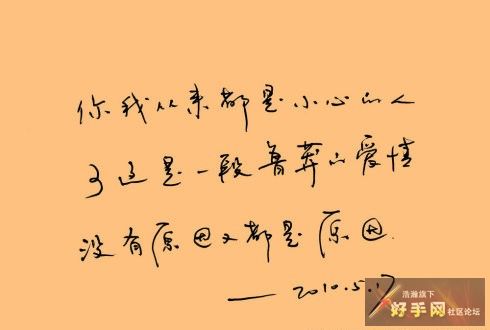 你我从来都是小心的人
了这是一段鲁莽的爱情
没有原因又都是原因.
——2010.5.17
浩瀚旗下
好手网社区论坛